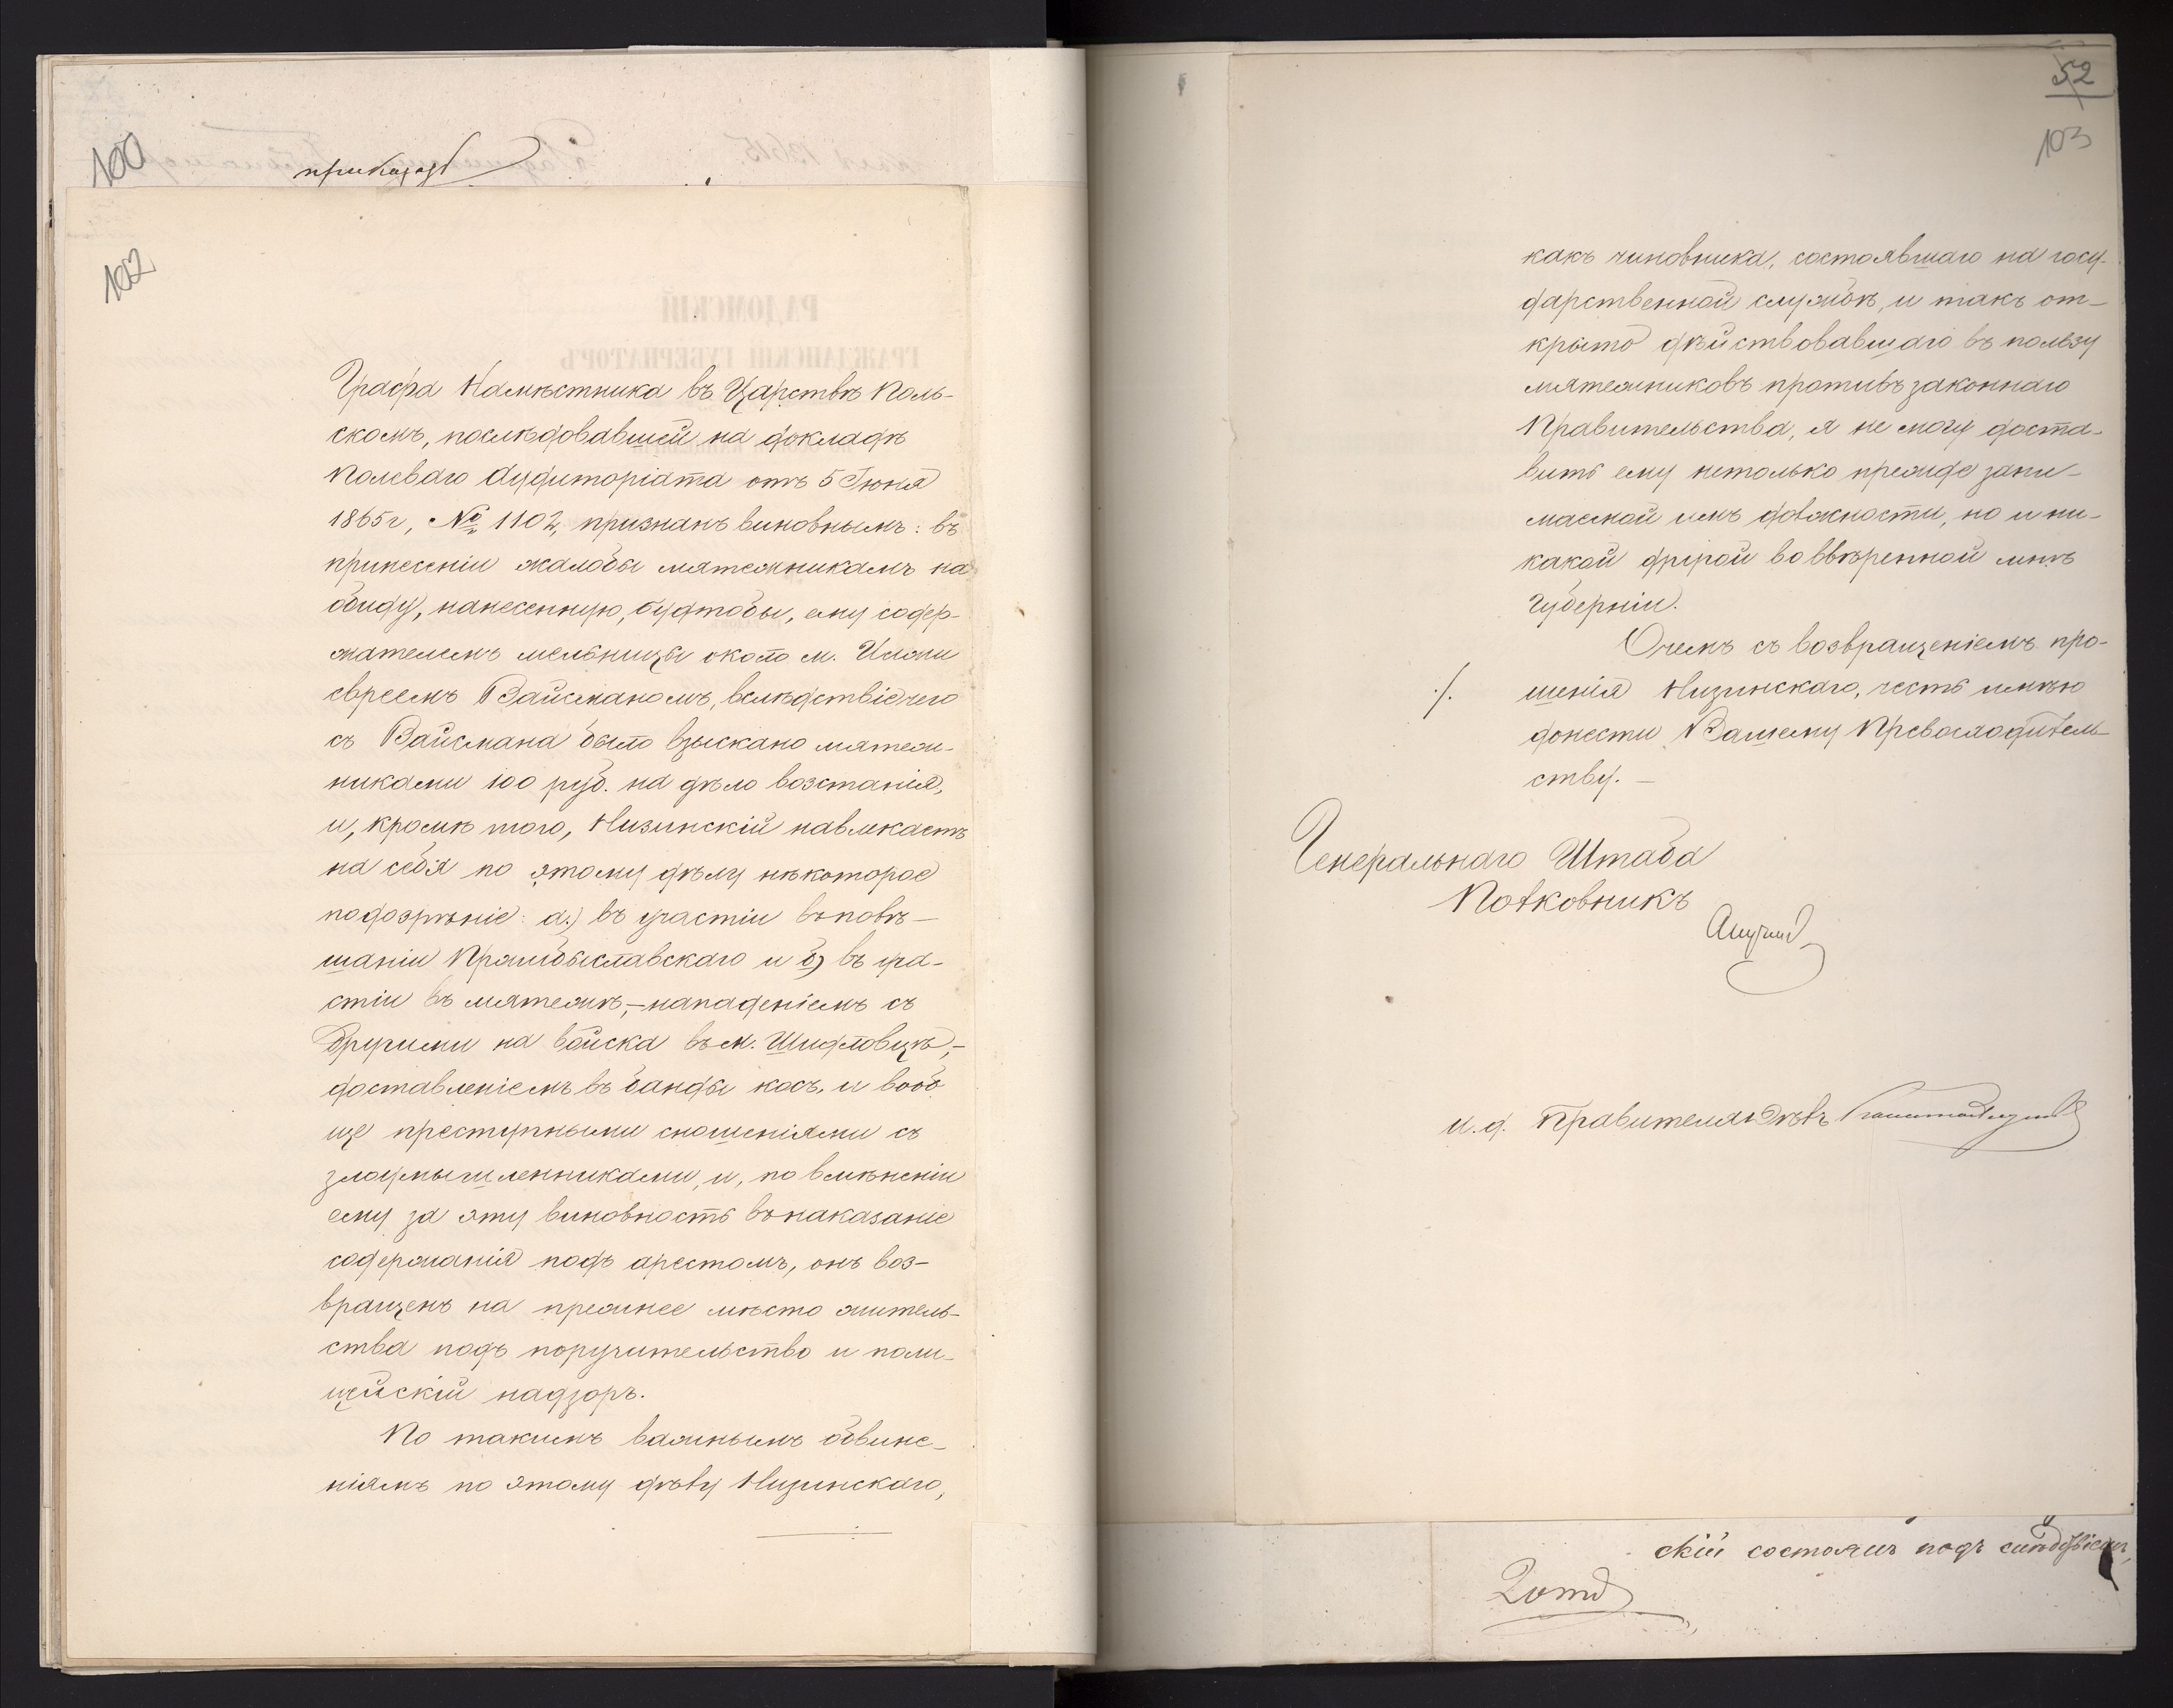 100
приказать
102
Графа Намѣстника въ Царствѣ Поль-
скомъ, послѣдовавшей на докладѣ
Полеваго Аудиторіата отъ 5 Іюня
1865 г, № 1102, признанъ виновнымъ: въ
принесеніи жалобы мятежникамъ на
обиду, нанесенную, будтобы, ему содер-
жателемъ мельницы около м. Илжи
евреемъ Вайсманомъ, вслѣдствіе чего
съ Вайсмана было взыскано мятеж-
никами 100 руб. на дѣло возстанія,
и, кромѣ того, Низинскій навлекаетъ
на себя по этому дѣлу нѣкоторое
подозрѣніе: а.) въ участіи въ повѣ-
шаніи и б) въ уча-
стіи въ мятежѣ,- нападеніемъ съ
другими на войска въ м. Шидловцѣ,-
доставленіемъ въ банды косъ, и вооб
ще преступными сношеніями съ
злоумышленниками, и, по вмѣненіи
ему за эту виновность въ наказаніе
содержанія подъ арестомъ, онъ воз-
вращенъ на прежнее мѣсто житель-
ства подъ поручительство и поли-
цейскій надзоръ.
По такимъ важнымъ обвине-
ніямъ по этому дѣлу Низинскаго,
52
103
какъ чиновника, состоявшаго на госу-
дарственной службѣ, и такъ от-
крыто дѣйствовавшаго въ пользу
мятежниковъ противъ законнаго
Правительства, я не могу доста-
вить ему нетолько прежде зани-
маемой имъ должности, но и ни-
какой другой во ввѣренной мнѣ
Губерніи.
О чемъ съ возвращеніемъ про-
./. шенія Низинскаго, честь имѣю
донести Вашему Превосходитель-
ству. -
Генеральнаго Штаба
Полковникъ
Анучинъ
и. д. Правителя Дѣлъ
скій состоялъ подъ слѣдствіемъ,